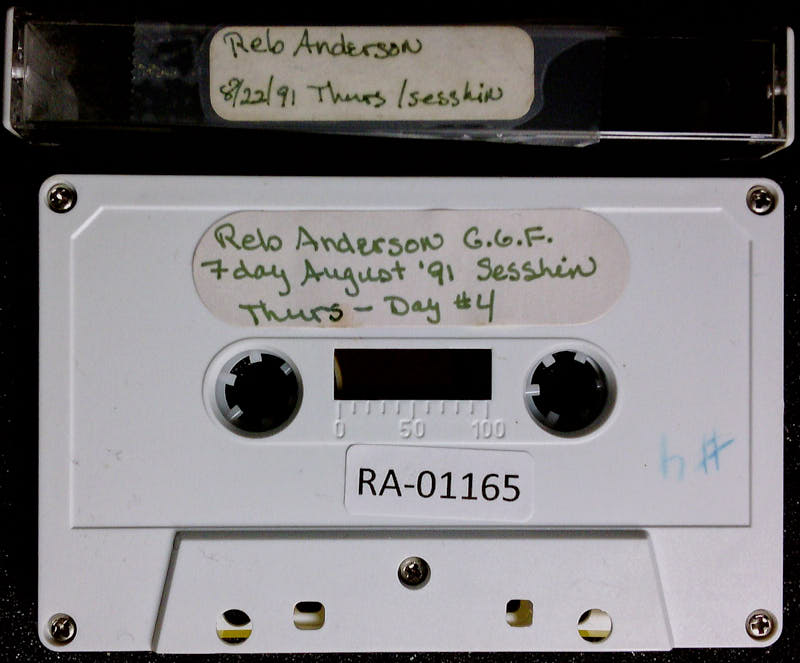 Reb Anderson
8/22/91 Thurs / sesshin
Reb Anderson G.G.F.
7 day August '91 Sesshin
Thurs - Day #4
0 50 100
RA-01165
#4